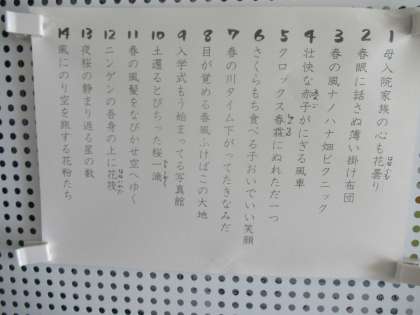 1 母入院家族の心も花曇り
2 春眠に話さぬ薄い掛け布団
3 春の風ナノハナ畑ピクニック
4 壮快な赤子がにぎる風車
5 クロックス春霖にぬれただ一つ
6 さくらもち食べる子おいでいい笑顔
7 春の川タイム下がってたきなみだ
8 目が覚める春風ふけばこの大地
9 入学式もう始まってる写真館
10 土還るとびちった桜一滴
11 春の風髪をなびかせ空へゆく
12 ニンゲンの吾身の上に花筏
13 夜桜の静まり返る星の数
14 風にのり空を旅する花粉たち